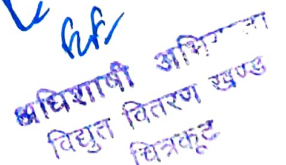 अधिशाषी
विद्युत वितरण खण्ड
चित्रकूट